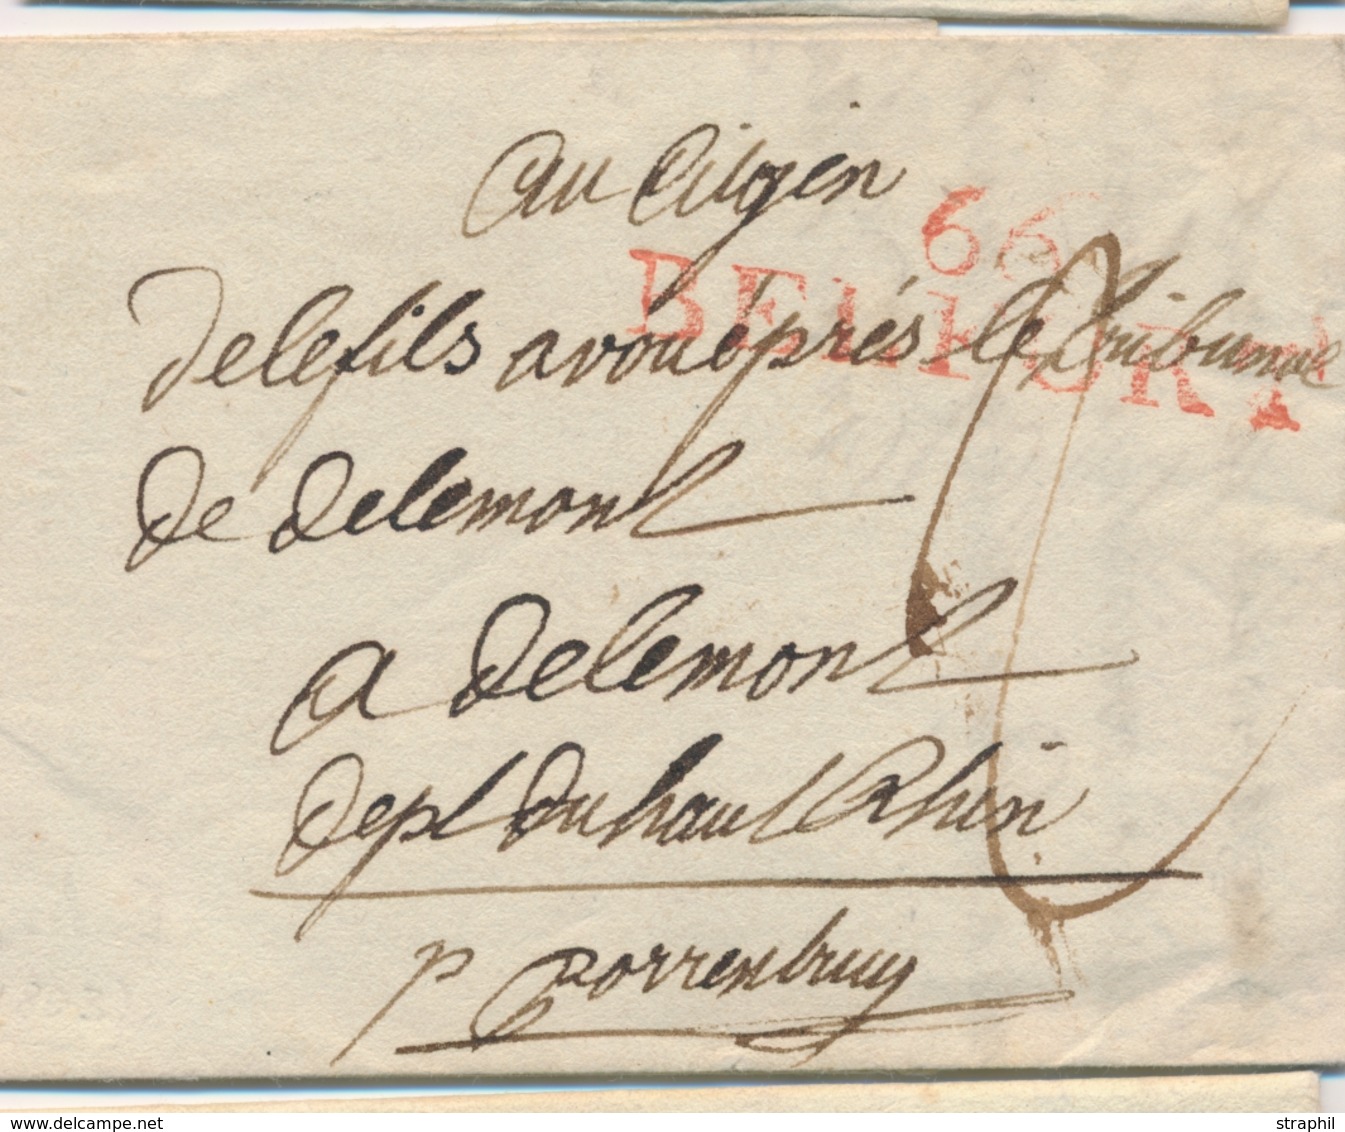 au Citoyen
66
BELFORT
Delefils avoué près le tribunal
de delemont
a Delemont
dept du haut Rhin
p Porrenbruy
www.delcampe.net
straphil